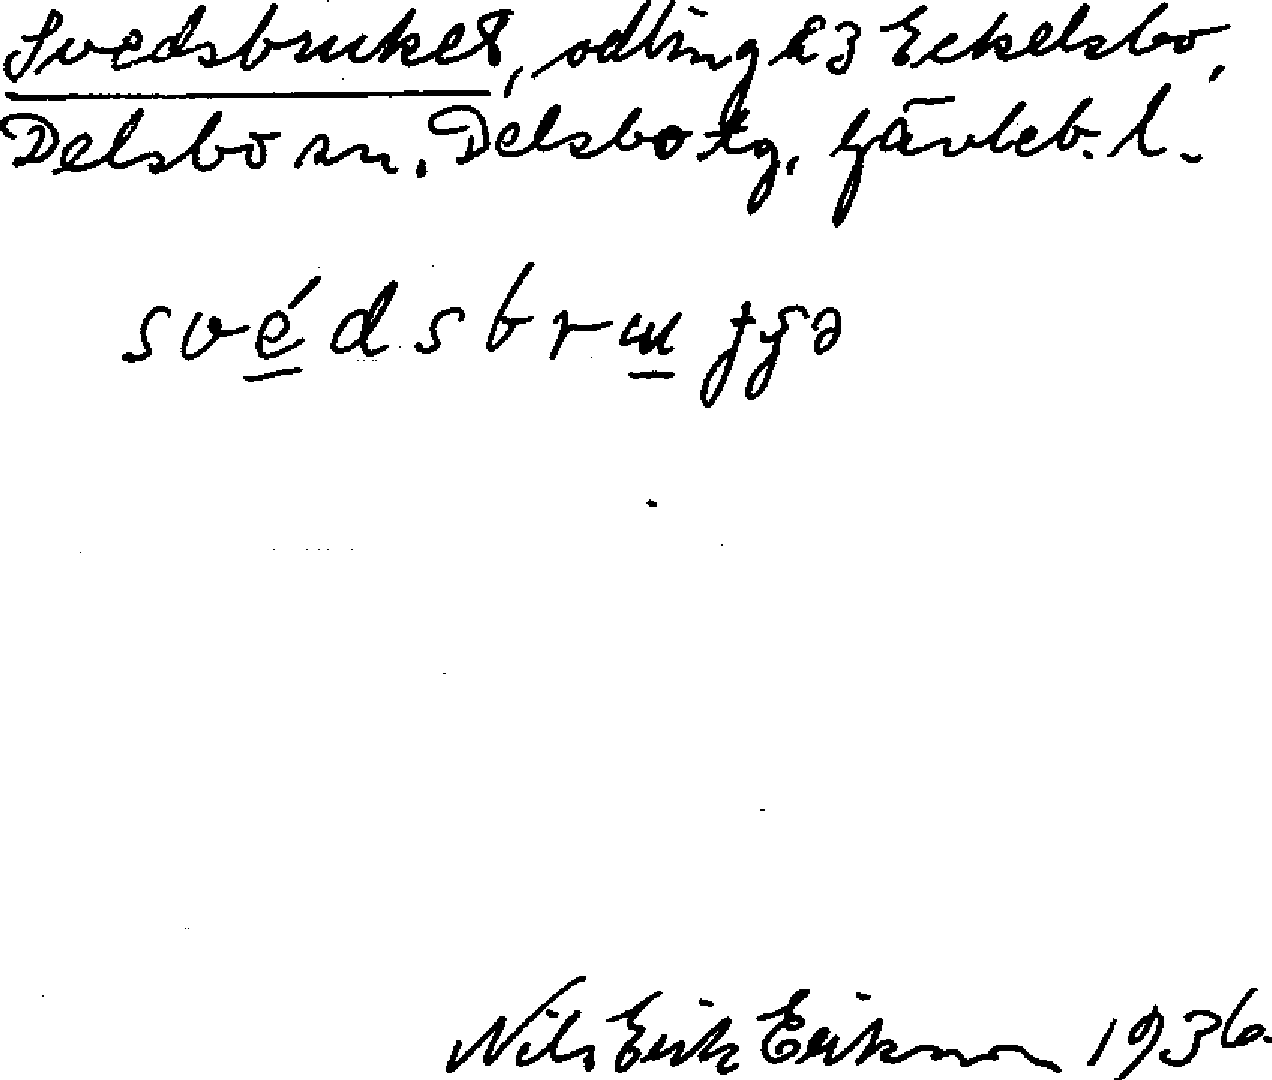 Svedsbruket, odling å 3 Eckelsbo,
Delsbo sn. Delsbo tg. Gävleb. l.
svédsbru
Nils Erik Erikson 1936.